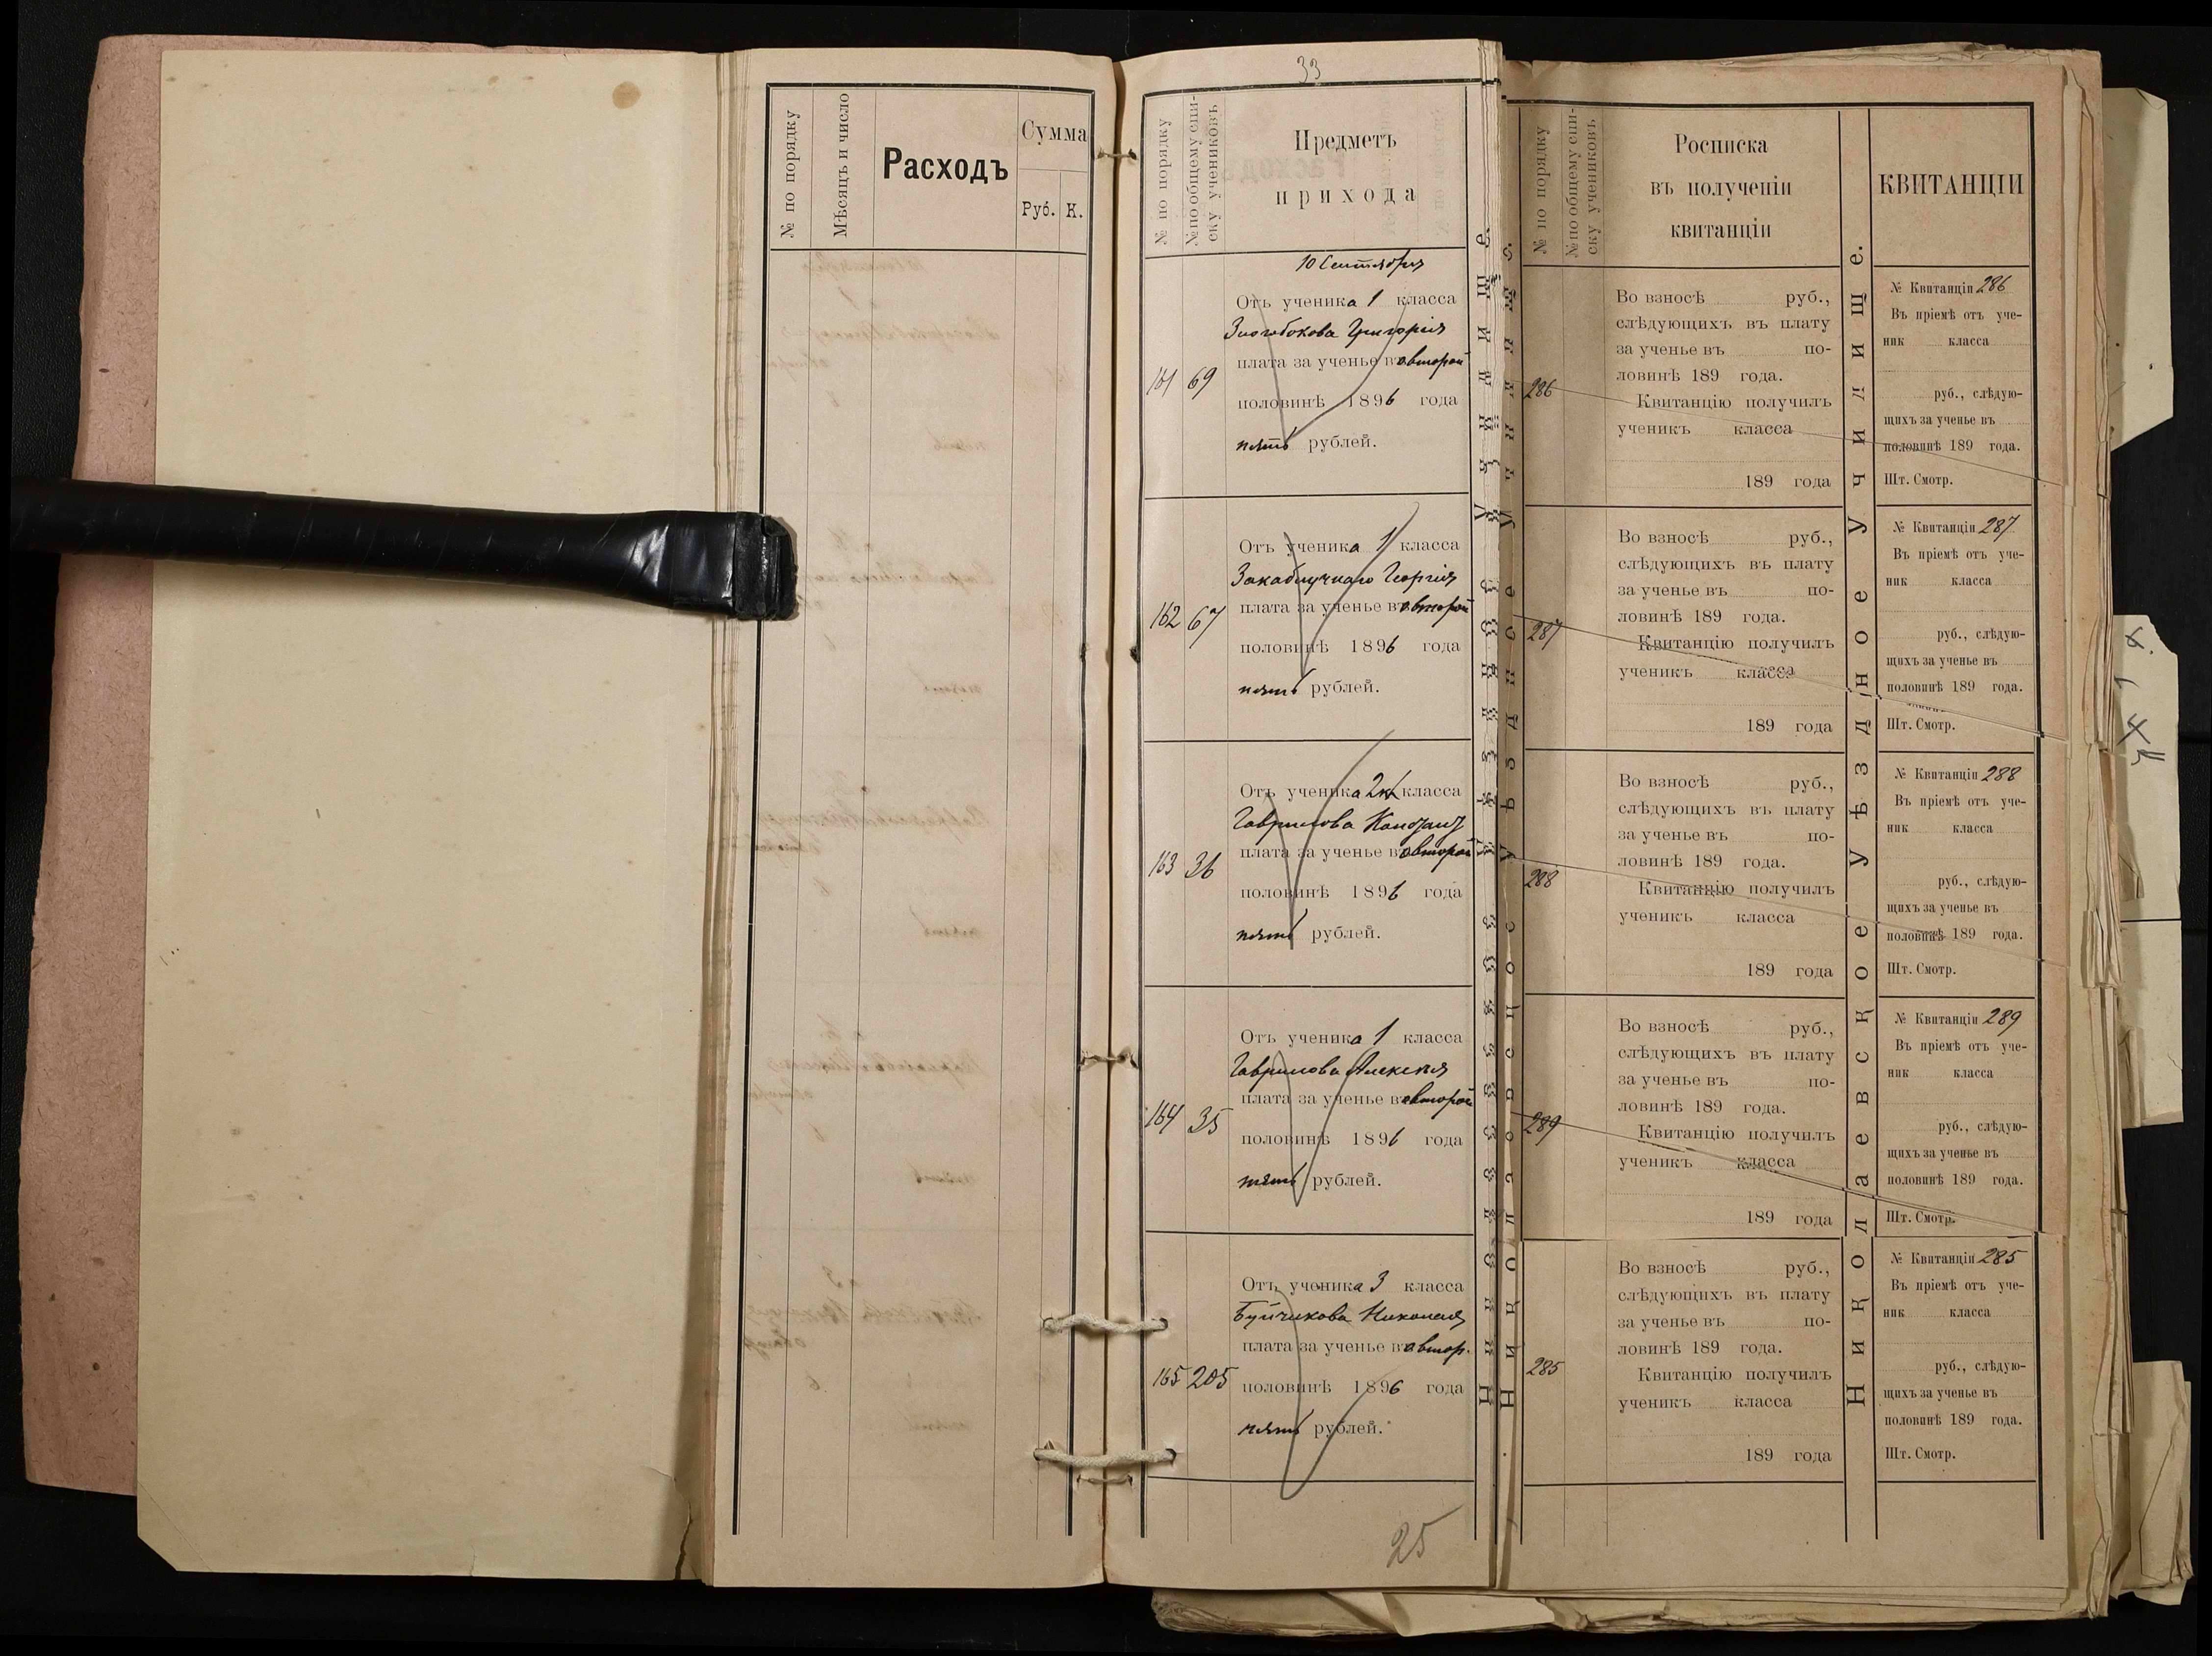 № по порядку
Мѣсяцъ и число
Расходъ
Сумма
Руб. К.
33
№ по порядку
№ по общему спи-
ску учениковъ
Предметъ
прихода
10 Сентября
Отъ ученика 1 класса
Григорія
плата за ученье въ второй
161 69
половинѣ 1896 года
пять рублей.
Отъ ученика 1 класса
Закаблучнаго Георгія
плата за ученье въ второй
162 67
половинѣ 1896 года
пять рублей.
Отъ ученика 2 кл класса
Гаврилова
плата за ученье въ второй
163 36
половинѣ 1896 года
пять рублей.
Отъ ученика 1 класса
Гаврилова Алексѣя
плата за ученье въ второй
164 35
половинѣ 1896 года
пять рублей.
Отъ ученика 3 класса
Буйчикова Николая
плата за ученье въ втор.
165 205
половинѣ 1896 года
пять рублей.
25
№ по порядку
№ по общему спи-
ску учениковъ
Росписка
въ полученіи
квитанціи
Во взносѣ руб.,
слѣдующихъ въ плату
за ученье въ по-
ловинѣ 189 года.
286
Квитанцію получилъ
ученикъ класса
189 года
Во взносѣ руб.,
слѣдующихъ въ плату
за ученье въ по-
ловинѣ 189 года.
287
Квитанцію получилъ
ученикъ класса
189 года
Во взносѣ руб.,
слѣдующихъ въ плату
за ученье въ по-
ловинѣ 189 года.
288
Квитанцію получилъ
ученикъ класса
189 года
Во взносѣ руб.,
слѣдующихъ въ плату
за ученье въ по-
ловинѣ 189 года.
289
Квитанцію получилъ
ученикъ класса
189 года
Во взносѣ руб.,
слѣдующихъ въ плату
за ученье въ по-
ловинѣ 189 года.
285
Квитанцію получилъ
ученикъ класса
189 года
Николаевское Уѣздное Училище.
КВИТАНЦІИ
№ Квитанціи 286
Въ пріемѣ отъ уче-
ник класса
руб., слѣдую-
щихъ за ученье въ
половинѣ 189 года.
Шт. Смотр.
№ Квитанціи 287
Въ пріемѣ отъ уче-
ник класса
руб., слѣдую-
щихъ за ученье въ
половинѣ 189 года.
Шт. Смотр.
№ Квитанціи 288
Въ пріемѣ отъ уче-
ник класса
руб., слѣдую-
щихъ за ученье въ
половинѣ 189 года.
Шт. Смотр.
№ Квитанціи 289
Въ пріемѣ отъ уче-
ник класса
руб., слѣдую-
щихъ за ученье въ
половинѣ 189 года.
Шт. Смотр.
№ Квитанціи 285
Въ пріемѣ отъ уче-
ник класса
руб., слѣдую-
щихъ за ученье въ
половинѣ 189 года.
Шт. Смотр.